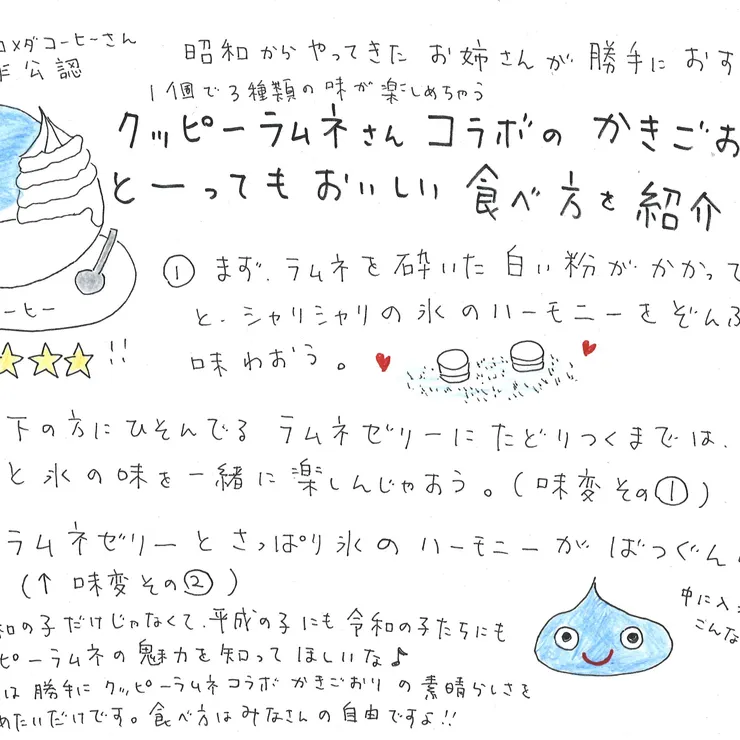 コメダコーヒーさん
公認
昭和からやってきた お姉さんが 勝手に おす
1個で3種類の味が楽しめちゃう
クッピーラムネさん コラボの かきごお
とーってもおいしい 食べ方を紹介
① まず、ラムネを砕いた白い粉が かかって
と、シャリシャリの氷のハーモニーをぞんぶ
味わおう。
ーヒー
!!
下の方にひそんでる ラムネゼリーに たどりつくまでは、
と氷の味を一緒に楽しんじゃおう。(味変その①)
ラムネゼリーと さっぱり氷の ハーモニーが ばつぐん
(↑ 味変その②)
和の子だけじゃなくて、平成の子にも 令和の子たちにも
ピーラムネの魅力を知って ほしいな♪
は 勝手に クッピーラムネコラボ かきごおり の 素晴らしさを
めたいだけです。食べ方は みなさんの自由ですよ!!
中に入
こんな